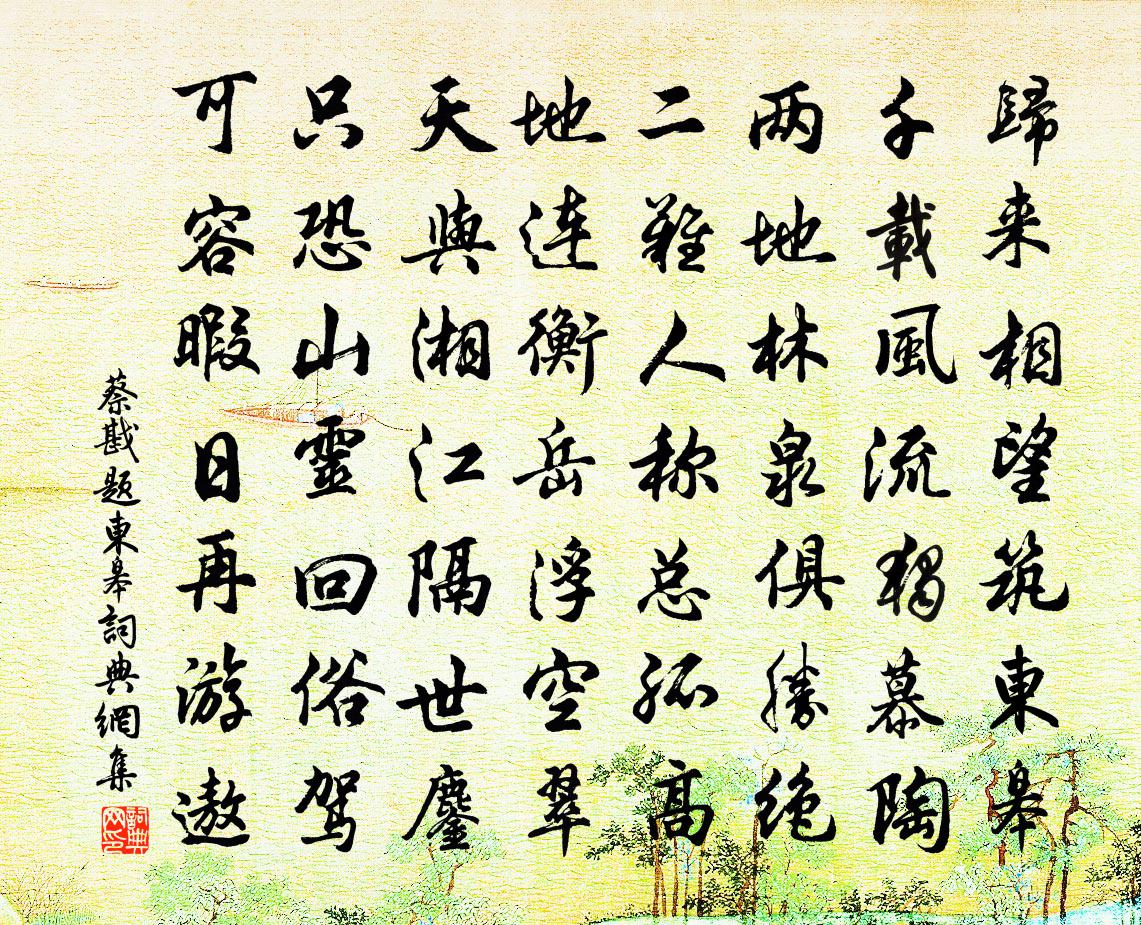 歸来相望筑東皋
千載風流獨慕陶
两地林泉俱勝绝
二難人称总孤高
地連衡岳浮空翠
天與湘江隔世鏖
只恐山靈回俗驾
可容暇日再游遨
蔡戡题東皋詞典網集
詞典网印